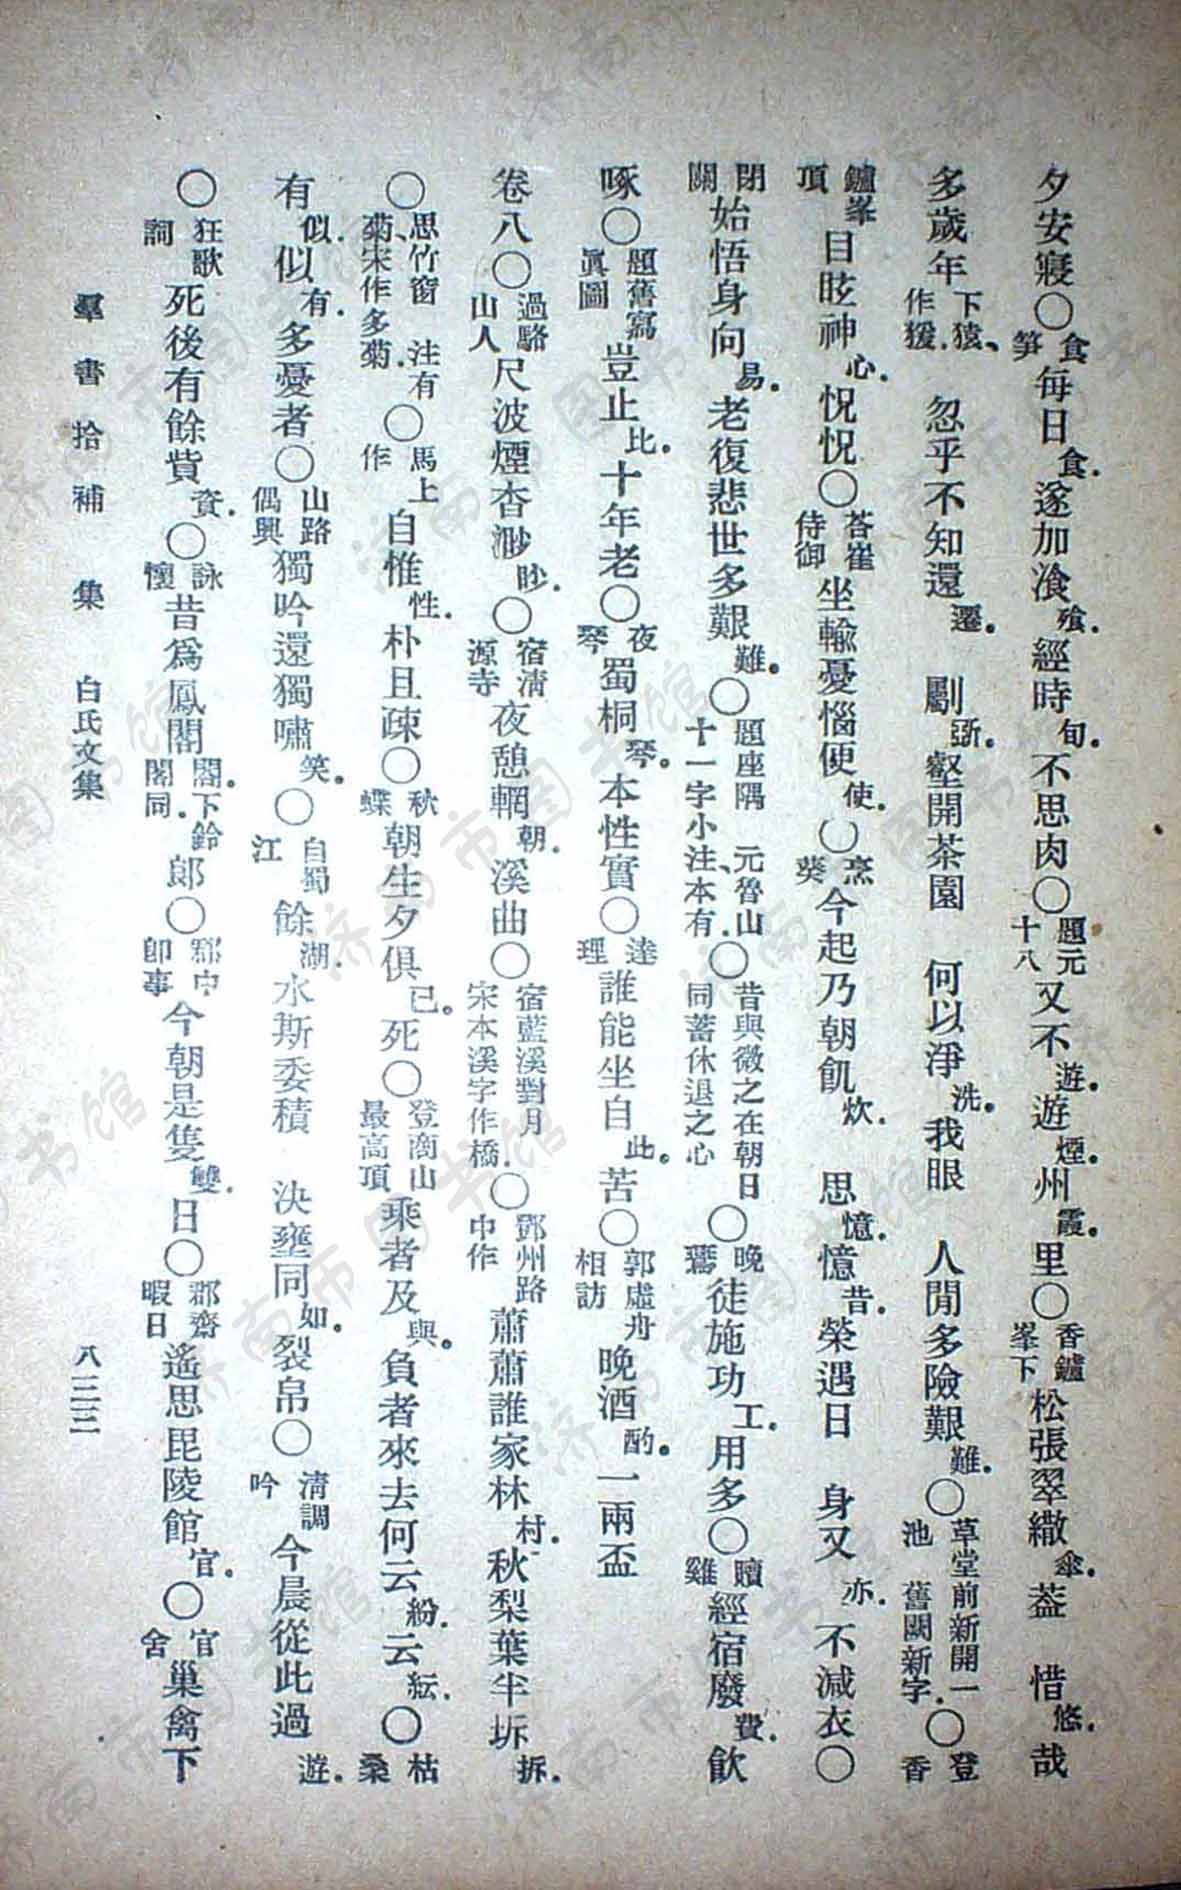 夕安寢〇食筍每日食.遂加飡飱.經時旬.不思肉〇題元十八又不遊.遊煙.州霞.里〇香鑪峯下松張翠繖傘.葢　惜悠.哉
多歲年下猿、作猨.忽乎不知還遷.　劚斲.壑開茶園　何以淨洗.我眼　人閒多險艱難.〇草堂前新開一池　舊闕新字.〇登香
鑪峯項目眩神心.怳怳〇荅崔侍御坐輸憂惱便使.〇烹葵今起乃朝飢炊.　思憶.憶昔.榮遇日　身又亦.不減衣〇
閉關始悟身向易.老復悲世多艱難.〇題座隅　元魯山十一字小注、本有.〇昔與微之在朝日同蓄休退之心〇晚鷰徒施功工.用多〇贖雞經宿廢費.飲
啄〇題舊寫眞圖豈止比.十年老〇夜琴蜀桐琴.本性實〇達理誰能坐自此.苦〇郭虛舟相訪晚酒酌.一兩盃
卷八〇過駱山人尺波煙杳渺眇.〇宿清源寺夜憩輞朝.溪曲〇宿藍溪對月　宋本溪字作橋.〇鄧州路中作蕭蕭誰家林村.秋梨葉半坼拆.
〇思竹窗　注有菊、宋作多菊.〇馬上作自惟性.朴且疎〇秋蝶朝生夕俱已.死〇登商山最高頂乘者及與.負者來去何云紛.云紜.〇枯桑
有似.似有.多憂者〇山路偶興獨吟還獨嘯笑.〇自蜀江餘湖.水斯委積　決壅同如.裂帛〇清調吟今晨從此過遊.
〇狂歌詞死後有餘貲資.〇詠懷昔爲鳳閣閣.下鈴閣同.郎〇郡中卽事今朝是隻雙.日〇郡齋暇日遙思毘陵館官.〇官舍巢禽下
羣書拾補　集　白氏文集　八三三